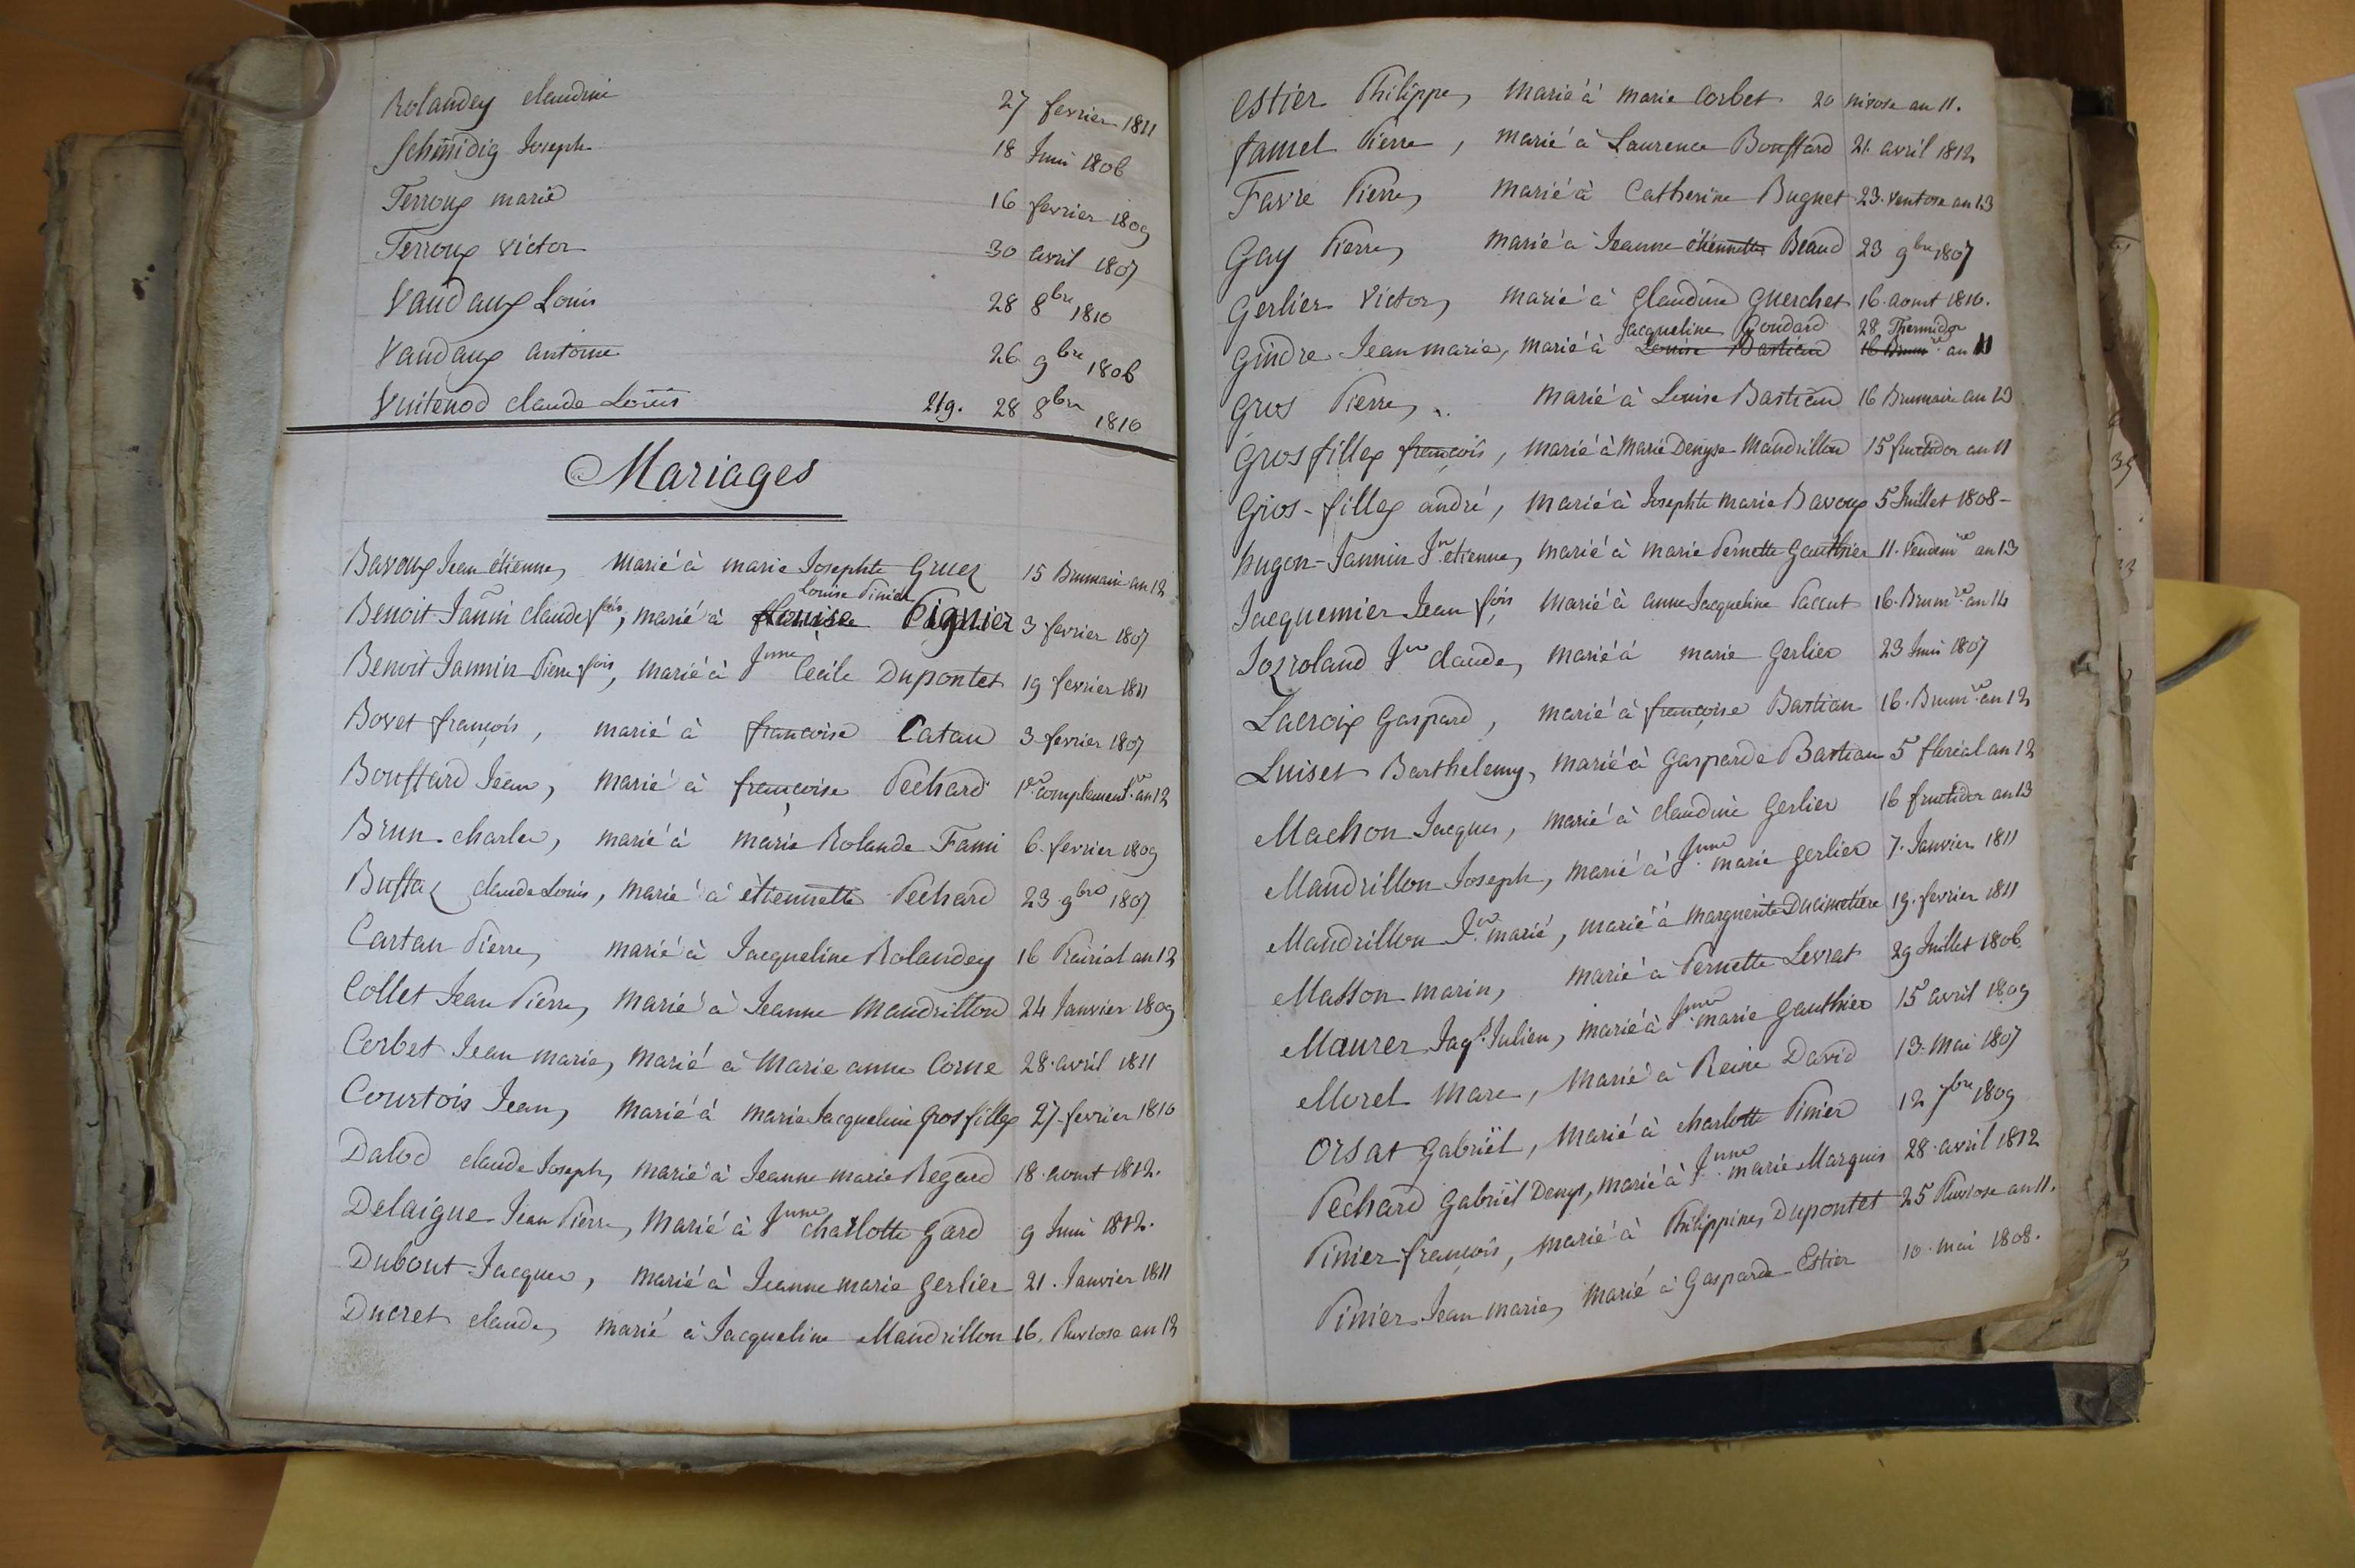 Rolandey claudine 27 fevrier 1811
Schmidig Joseph 18 Juin 1806
Terroux marie 16 fevrier 1809
Terroux victor 30 avril 1807
Vandaux Louis 28 8bre 1810
Vandaux antoine 26 9bre 1806
Vuitenod claude Louis 219. 28 8bre 1810
Mariages
Bavoux Jean étienne, marié à marie Josephte Gruez 15 Brumaire an 12
Louise Pinier
Benoit Jannin claude fois, marié à Louise Pignier 3 fevrier 1807
Benoit Jannin Pierre fois, marié à Jnne Cecile Dupontet 19 fevrier 1811
Bovet françois, marié à francoise Catau 3 fevrier 1807
Bouffard Jean, marié à francoise Pechard 1er complementre an 12
Brun charles, marié à marie Rolande Fami 6. fevrier 1809
Buffaz claude Louis, marié à étiennette Pechard 23 9bre 1807
Cartau Pierre, marié à Jacqueline Rolandey 16 Prairial an 12
Collet Jean Pierre, marié à Jeanne Mandrillon 24 Janvier 1809
Corbet Jean marie, marié à Marie anne Corne 28. avril 1811
Courtois Jean, marié à marie Jacqueline Grosfillex 27 fevrier 1810
Dalod claude Joseph, marié à Jeanne marie Regard 18. aout 1812.
Delaigue Jean Pierre, marié à Jnne charlotte Gard 9 Juin 1812.
Dubout Jacques, marié à Jeanne marie Gerlier 21. Janvier 1811
Ducret claude, marié à Jacqueline Mandrillon 16. Pluviose an 12
Estier Philippe, marié à marie Corbet 20 nivose an 11.
famel Pierre, marié à Laurence Bouffard 21. avril 1812
Favre Pierre, marié à Catherine Bugnet 23. Ventose an 13
Gay Pierre, marié à Jeanne étiennette Beaud 23 9bre 1807
Gerlier Victor, marié à Claudine Guerchet 16. aout 1810.
Jacqueline Goudard 28 Thermidor
Gindre Jean marie, marié à Louise Bastian 16 Brumre an 11
Gros Pierre, marié à Louise Bastian 16 Brumaire an 12
Grosfillex françois, marié à Marie Denyse Mandrillon 15 fructidor an 11
Gros-fillex andré, marié à Josephte marie Bavoux 5 Juillet 1808
hugon-Jannin Jn etienne, marié à marie Pernette Gauthier 11. Vendemre an 13
Jacquemier Jean fois marié à anne Jacqueline Paccut 16. Brumre an 14
Jozroland Jn claude, marié à marie Gerlier 23 Juin 1807
Lacroix Gaspard, marié à françoise Bastian 16. Brumre an 12
Luiset Barthelemy, marié à Gasparde Bastian 5 floréal an 12
Machon Jacques, marié à claudine Gerlier 16 fructidor an 13
Mandrillon Joseph, marié à Jnne marie Gerlier 7. Janvier 1811
Mandrillon Jn marie, marié à marguerite Ducimetiere 19. fevrier 1811
Masson marin, marié à Pernette Levrat 29 Juillet 1806
Maurer Jaqs Julien, marié à Jnne marie Gauthier 15 avril 1809
Morel Marc, marié à Reine David 13. Mai 1807
Orsat Gabriël, marié à charlotte Pinier 12 7bre 1809
Pechard Gabriël Denys, marié à Jnne marie Marquis 28. avril 1812
Pinier françois, marié à Philippine Dupontet 25 Pluviose an 11.
Pinier Jean marie, marié à Gasparde Estier 10. mai 1808.